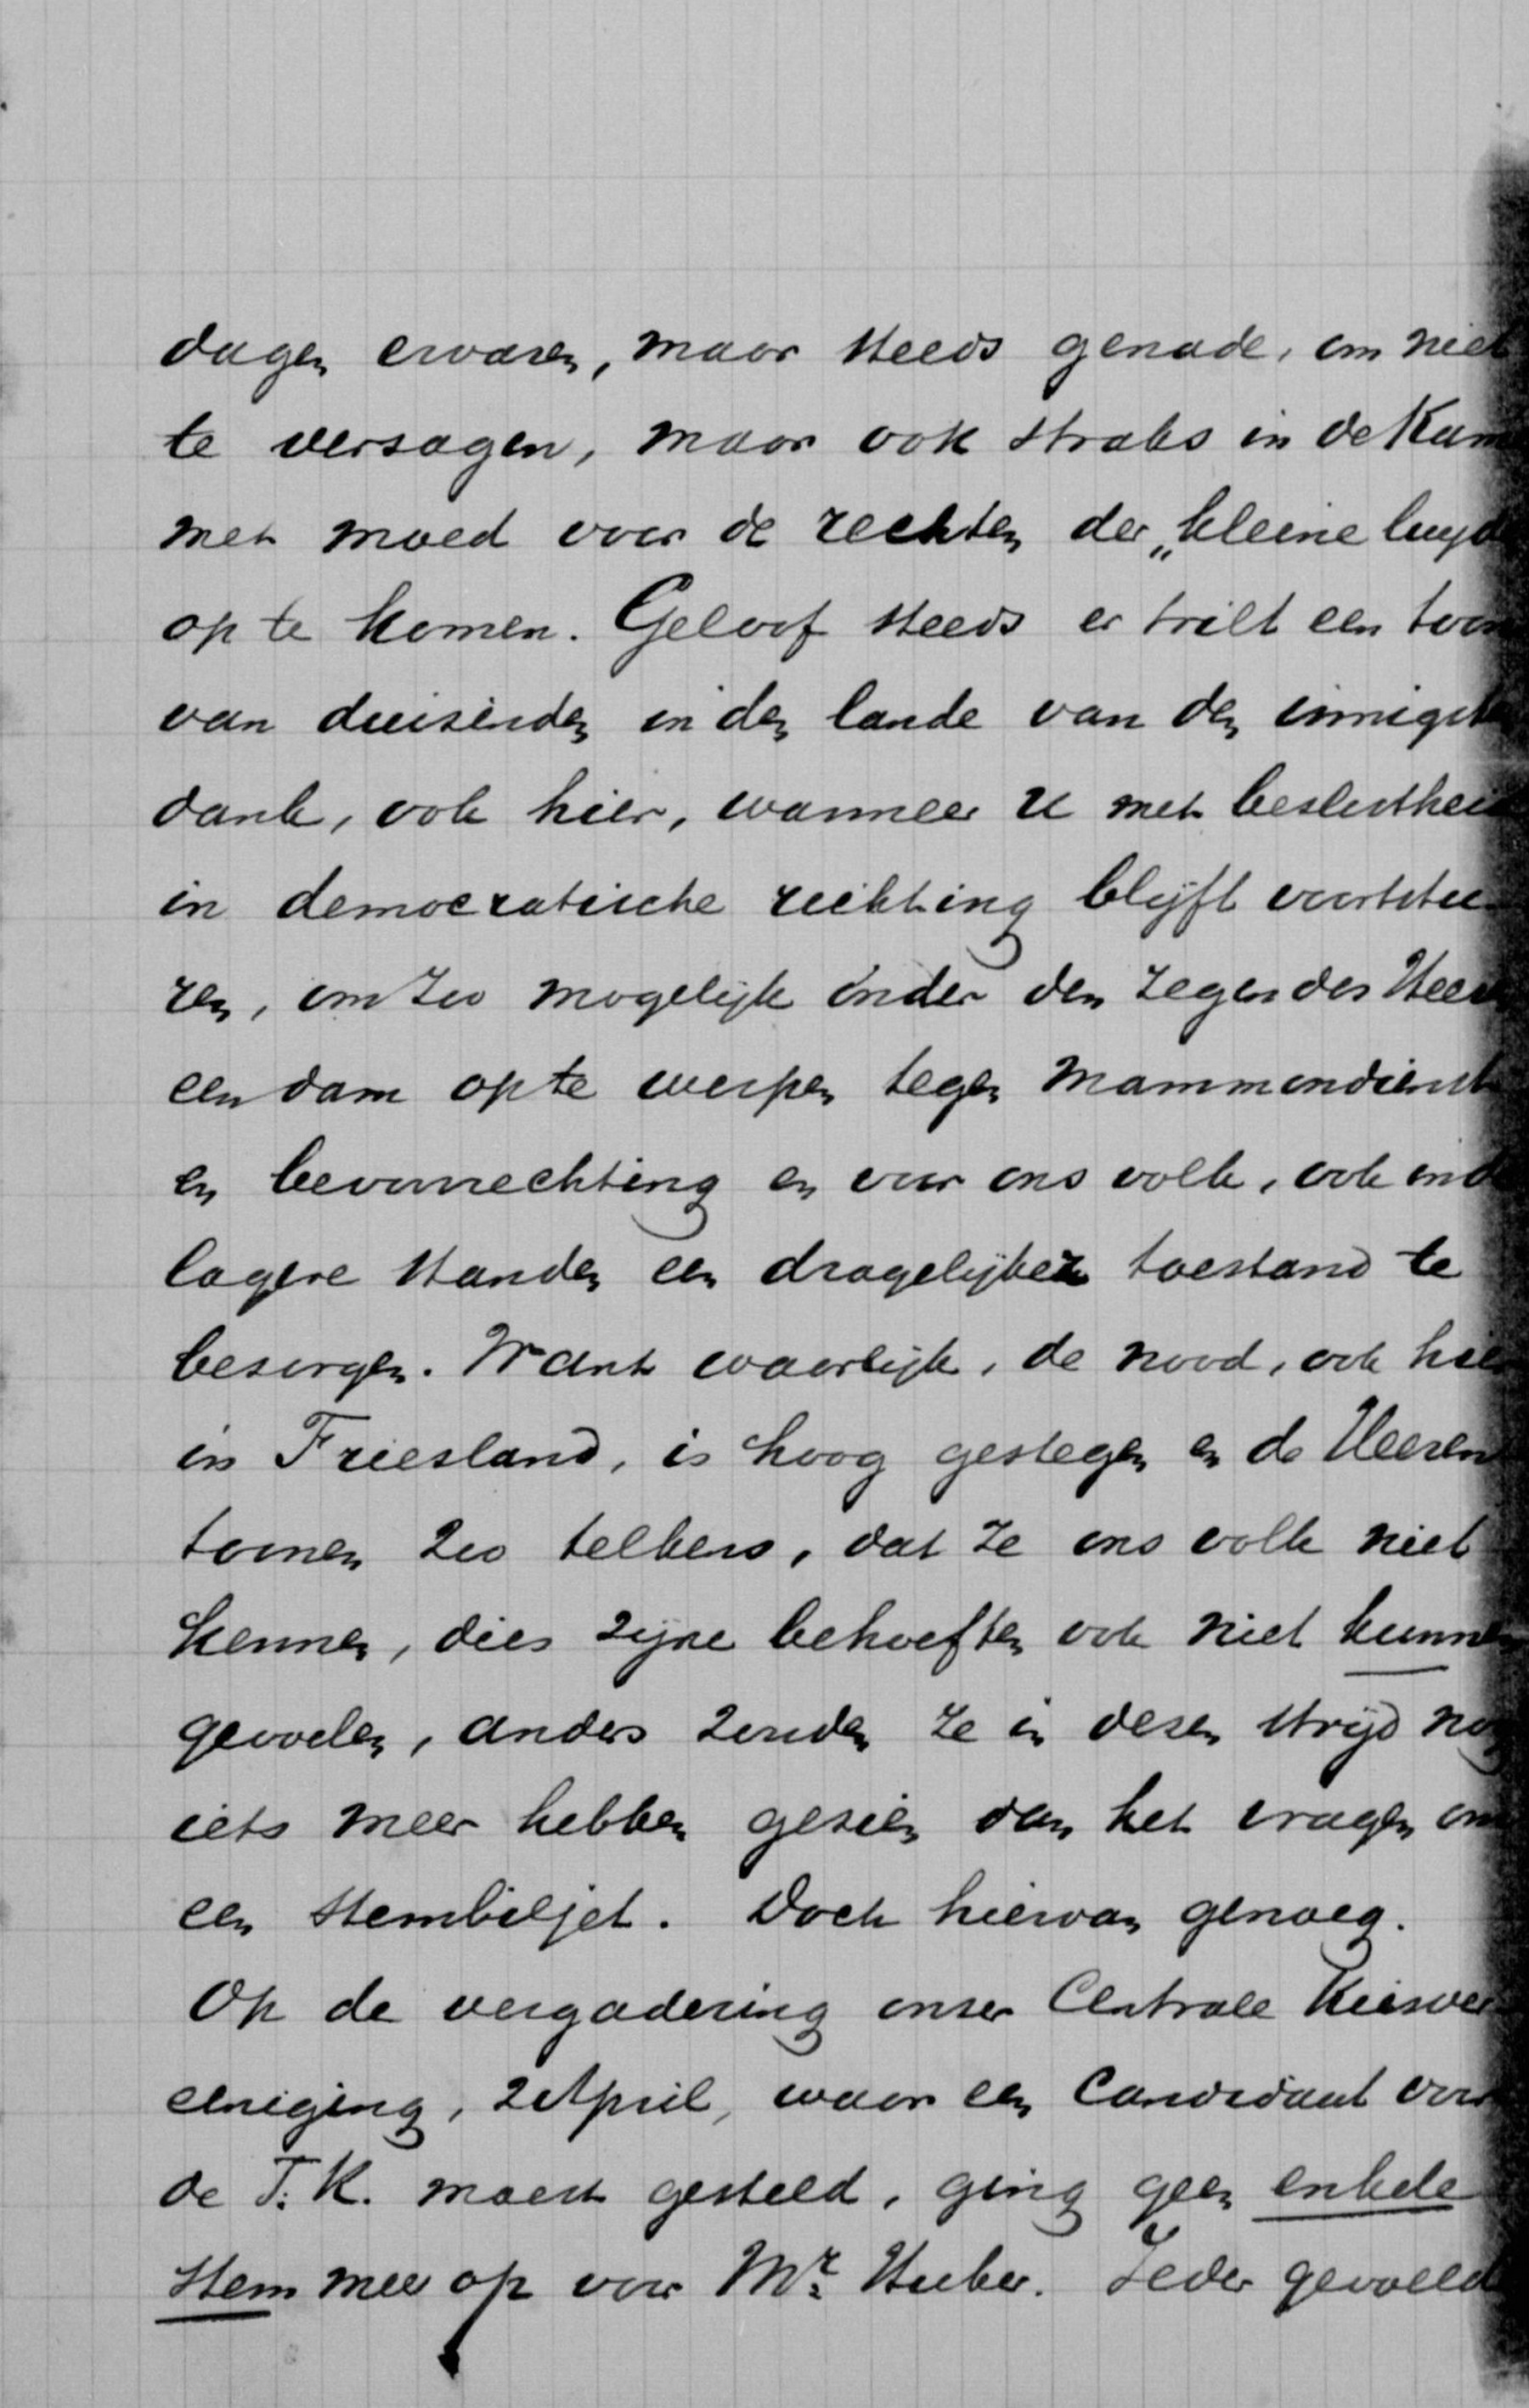 dagen ervaren, maar steeds genade, om niet
te versagen, maar ook straks in de Kam
met moed voor de rechten der „kleine luyd
op te komen. Geloof steeds er trilt een toon
van duisenden in den lande van den innigsten
dank, ook hier, wanneer U met beslistheid
in democratische richting blijft voortstu
ren, om zoo mogelijk onder den zegen des Heeren
een dam op te werpen tegen Mammondienst
en bevoorrechting en voor ons volk, ook in de
lagere standen een dragelijken toestand te
besorgen. Want waarlijk, de nood, ook hier
in Friesland, is hoog gestegen en de Heeren
toonen zoo telkens, dat ze ons volk niet
kennen, dies zijne behoeften ook niet kunnen
gevoelen, anders zouden ze in desen strijd nog
iets meer hebben gesien dan het vragen om
een stembiljet. Doch hiervan genoeg.
Op de vergadering onser Centrale Kiesver
eeniging, 2 April, waar een Candidaat voor
de T.K. moest gesteld, ging geen enkele
stem meer op voor Mr. Huber. Ieder gevoeld